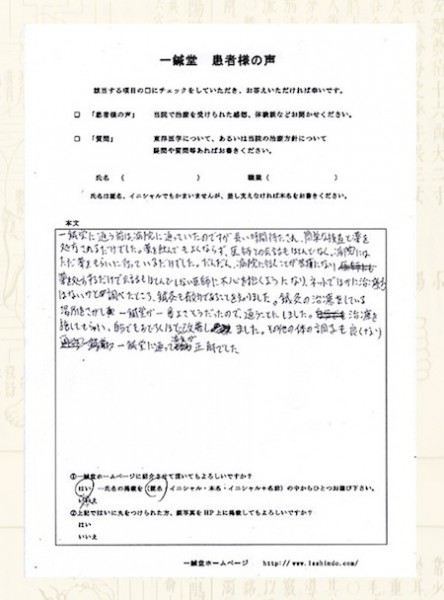 一鍼堂 患者様の声
該当する項目の□にチェックをしていただき、お答えいただければ幸いです。
□ 「患者様の声」 当院で治療を受けられた感想、体験談などお聞かせください。
□ 「質問」 東洋医学について、あるいは当院の治療方針について
疑問や質問等あればお書きください。
氏名 ( ) 職業 ( )
氏名は匿名、イニシャルでもかまいませんが、差し支えなければ本名をお書きください。
本文
一鍼堂に通う前は病院に通っていたのですが長い時間待たされ、簡単な検査と薬を
処方されるだけでした。薬を飲んでもよくならず、医師との会話もほとんどなく、病院には
ただ薬をもらいに行っているだけでした。だんだん、病院に行くことが苦痛になり
薬を処方するだけで会話もほとんどしない医師に不信を抱くようになり、ネットでほかに治療
はないのかと調べたところ、鍼灸も有効であることを知りました。鍼灸の治療をしている
場所をさがし 一鍼堂が一番よさそうだったので、通うことにしました。 治療を
して 改善し ました。その他の体の調子も良くなり
一鍼堂に通って 正解でした
①一鍼堂ホームページに紹介させて頂いてもよろしいですか?
はい ―氏名の掲載を(匿名・イニシャル・本名・イニシャル+名前)の中からひとつお選び下さい。
いいえ
②上記ではいに丸をつけられた方、顔写真をHP上に掲載してもよろしいですか?
はい
いいえ
一鍼堂ホームページ http://www.isshindo.com/